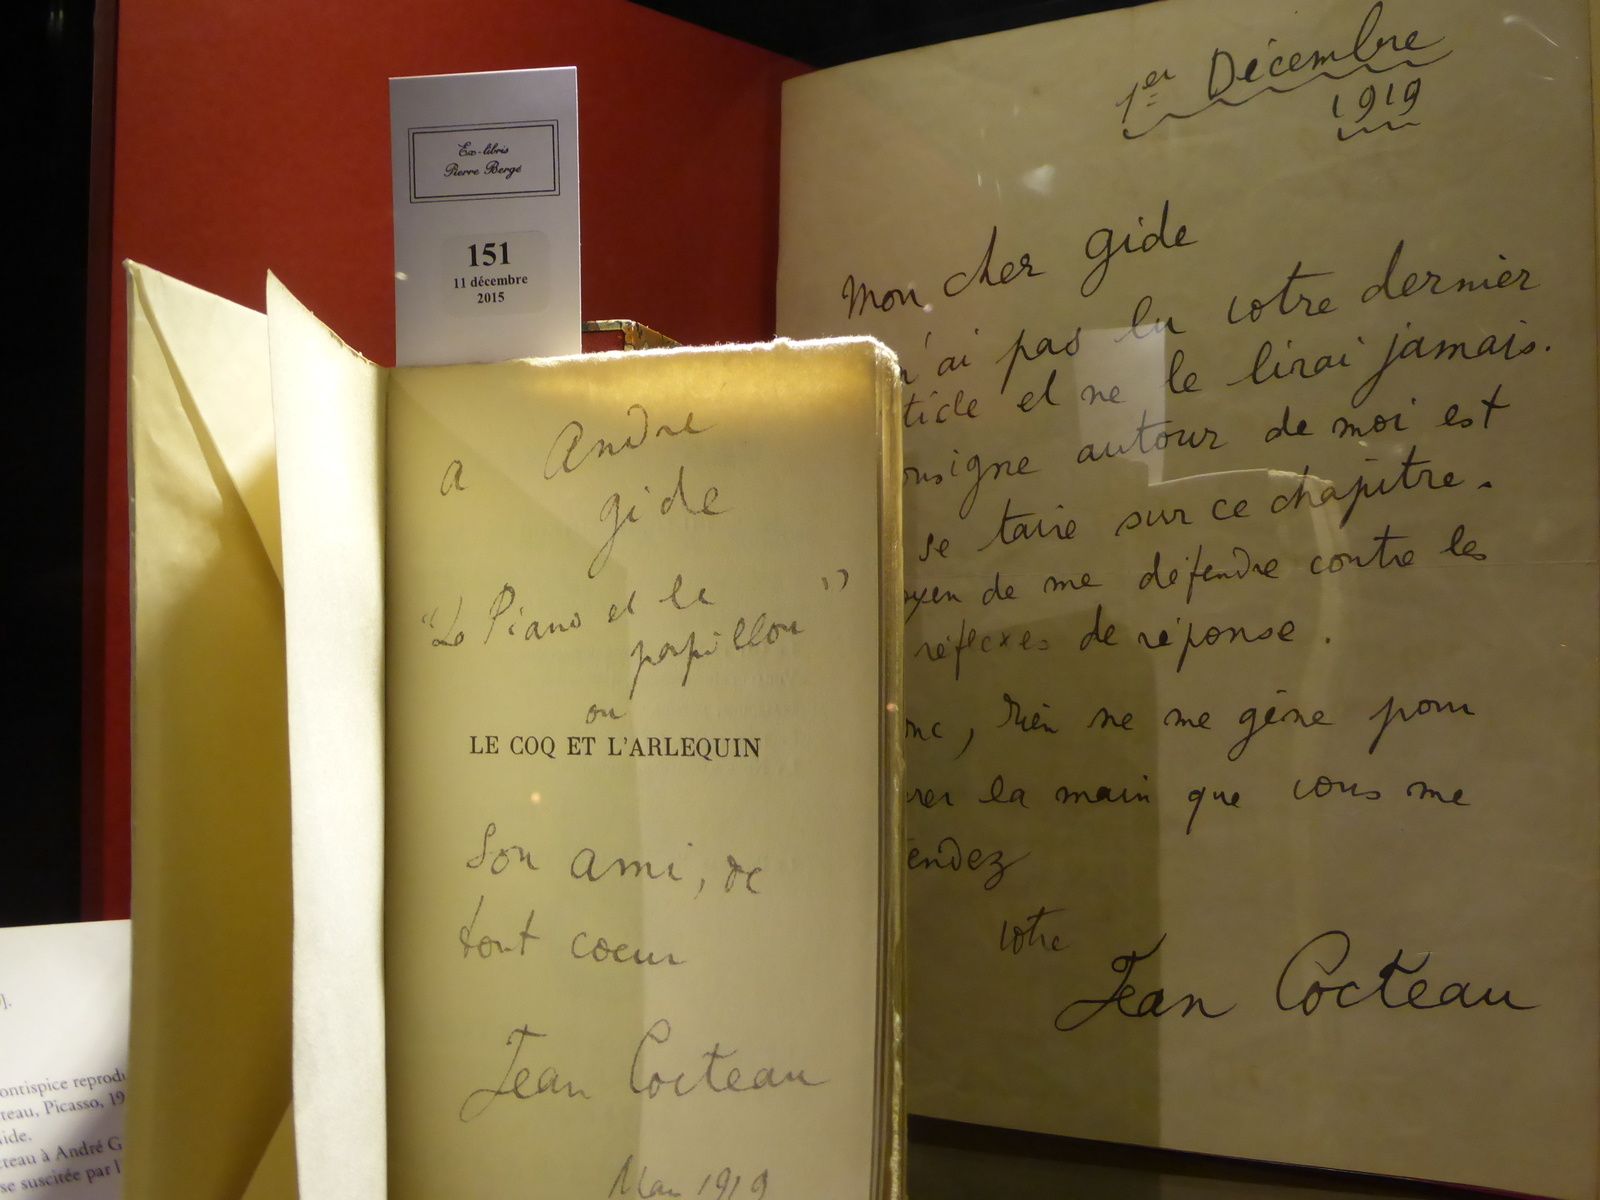 Ex-libris
Pierre Bergé
151
11 décembre
2015
a André
gide
"Le Piano et le
papillon"
ou
LE COQ ET L'ARLEQUIN
Son ami, de
tout coeur
Jean Cocteau
1919
1er Décembre
1919
Mon cher gide
n'ai pas lu votre dernier
ticle et ne le lirai jamais.
onsigne autour de moi est
se taire sur ce chapitre.
oyen de me défendre contre les
réflexes de réponse.
onc, rien ne me gêne pour
rrer la main que vous me
tendez
votre
Jean Cocteau
].
ontispice reprodu
teau, Picasso, 19
ide.
cteau à André G
se suscitée par l'